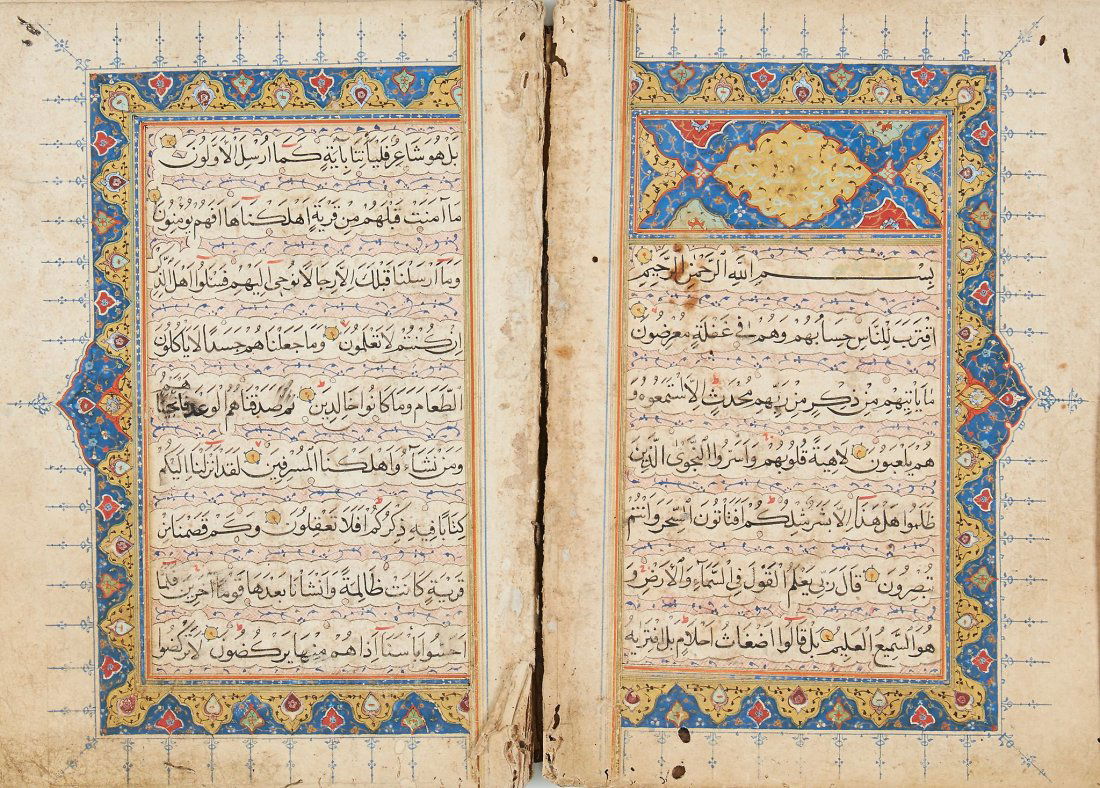 بِسْمِ اللَّهِ الرَّحْمَنِ الرَّحِيمِ
اقْتَرَبَ لِلنَّاسِ حِسَابُهُمْ وَهُمْ فِي غَفْلَةٍ مُعْرِضُونَ
مَا يَأْتِيهِمْ مِنْ ذِكْرٍ مِنْ رَبِّهِمْ مُحْدَثٍ إِلَّا اسْتَمَعُوهُ وَ
هُمْ يَلْعَبُونَ لَاهِيَةً قُلُوبُهُمْ وَأَسَرُّوا النَّجْوَى الَّذِينَ
ظَلَمُوا هَلْ هَذَا إِلَّا بَشَرٌ مِثْلُكُمْ أَفَتَأْتُونَ السِّحْرَ وَأَنْتُمْ
تُبْصِرُونَ قَالَ رَبِّي يَعْلَمُ الْقَوْلَ فِي السَّمَاءِ وَالْأَرْضِ وَ
هُوَ السَّمِيعُ الْعَلِيمُ بَلْ قَالُوا أَضْغَاثُ أَحْلَامٍ بَلِ افْتَرَيهُ
بَلْ هُوَ شَاعِرٌ فَلْيَأْتِنَا بِآيَةٍ كَمَا أُرْسِلَ الْأَوَّلُونَ
مَا آمَنَتْ قَبْلَهُمْ مِنْ قَرْيَةٍ أَهْلَكْنَاهَا أَفَهُمْ يُؤْمِنُونَ
وَمَا أَرْسَلْنَا قَبْلَكَ إِلَّا رِجَالًا نُوحِي إِلَيْهِمْ فَسْئَلُوا أَهْلَ الذِّكْرِ
إِنْ كُنْتُمْ لَا تَعْلَمُونَ وَمَا جَعَلْنَاهُمْ جَسَدًا لَا يَأْكُلُونَ
الطَّعَامَ وَمَا كَانُوا خَالِدِينَ ثُمَّ صَدَقْنَاهُمُ الْوَعْدَ فَأَنْجَيْنَاهُمْ
وَمَنْ نَشَاءُ وَأَهْلَكْنَا الْمُسْرِفِينَ لَقَدْ أَنْزَلْنَا إِلَيْكُمْ
كِتَابًا فِيهِ ذِكْرُكُمْ أَفَلَا تَعْقِلُونَ وَكَمْ قَصَمْنَا مِنْ
قَرْيَةٍ كَانَتْ ظَالِمَةً وَأَنْشَأْنَا بَعْدَهَا قَوْمًا آخَرِينَ فَلَمَّا
أَحَسُّوا بَأْسَنَا إِذَا هُمْ مِنْهَا يَرْكُضُونَ لَا تَرْكُضُوا